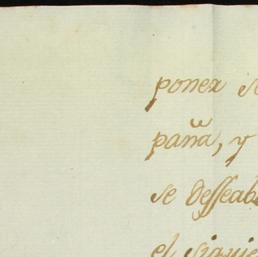 poner se
paña, y
se desseab
el siguie